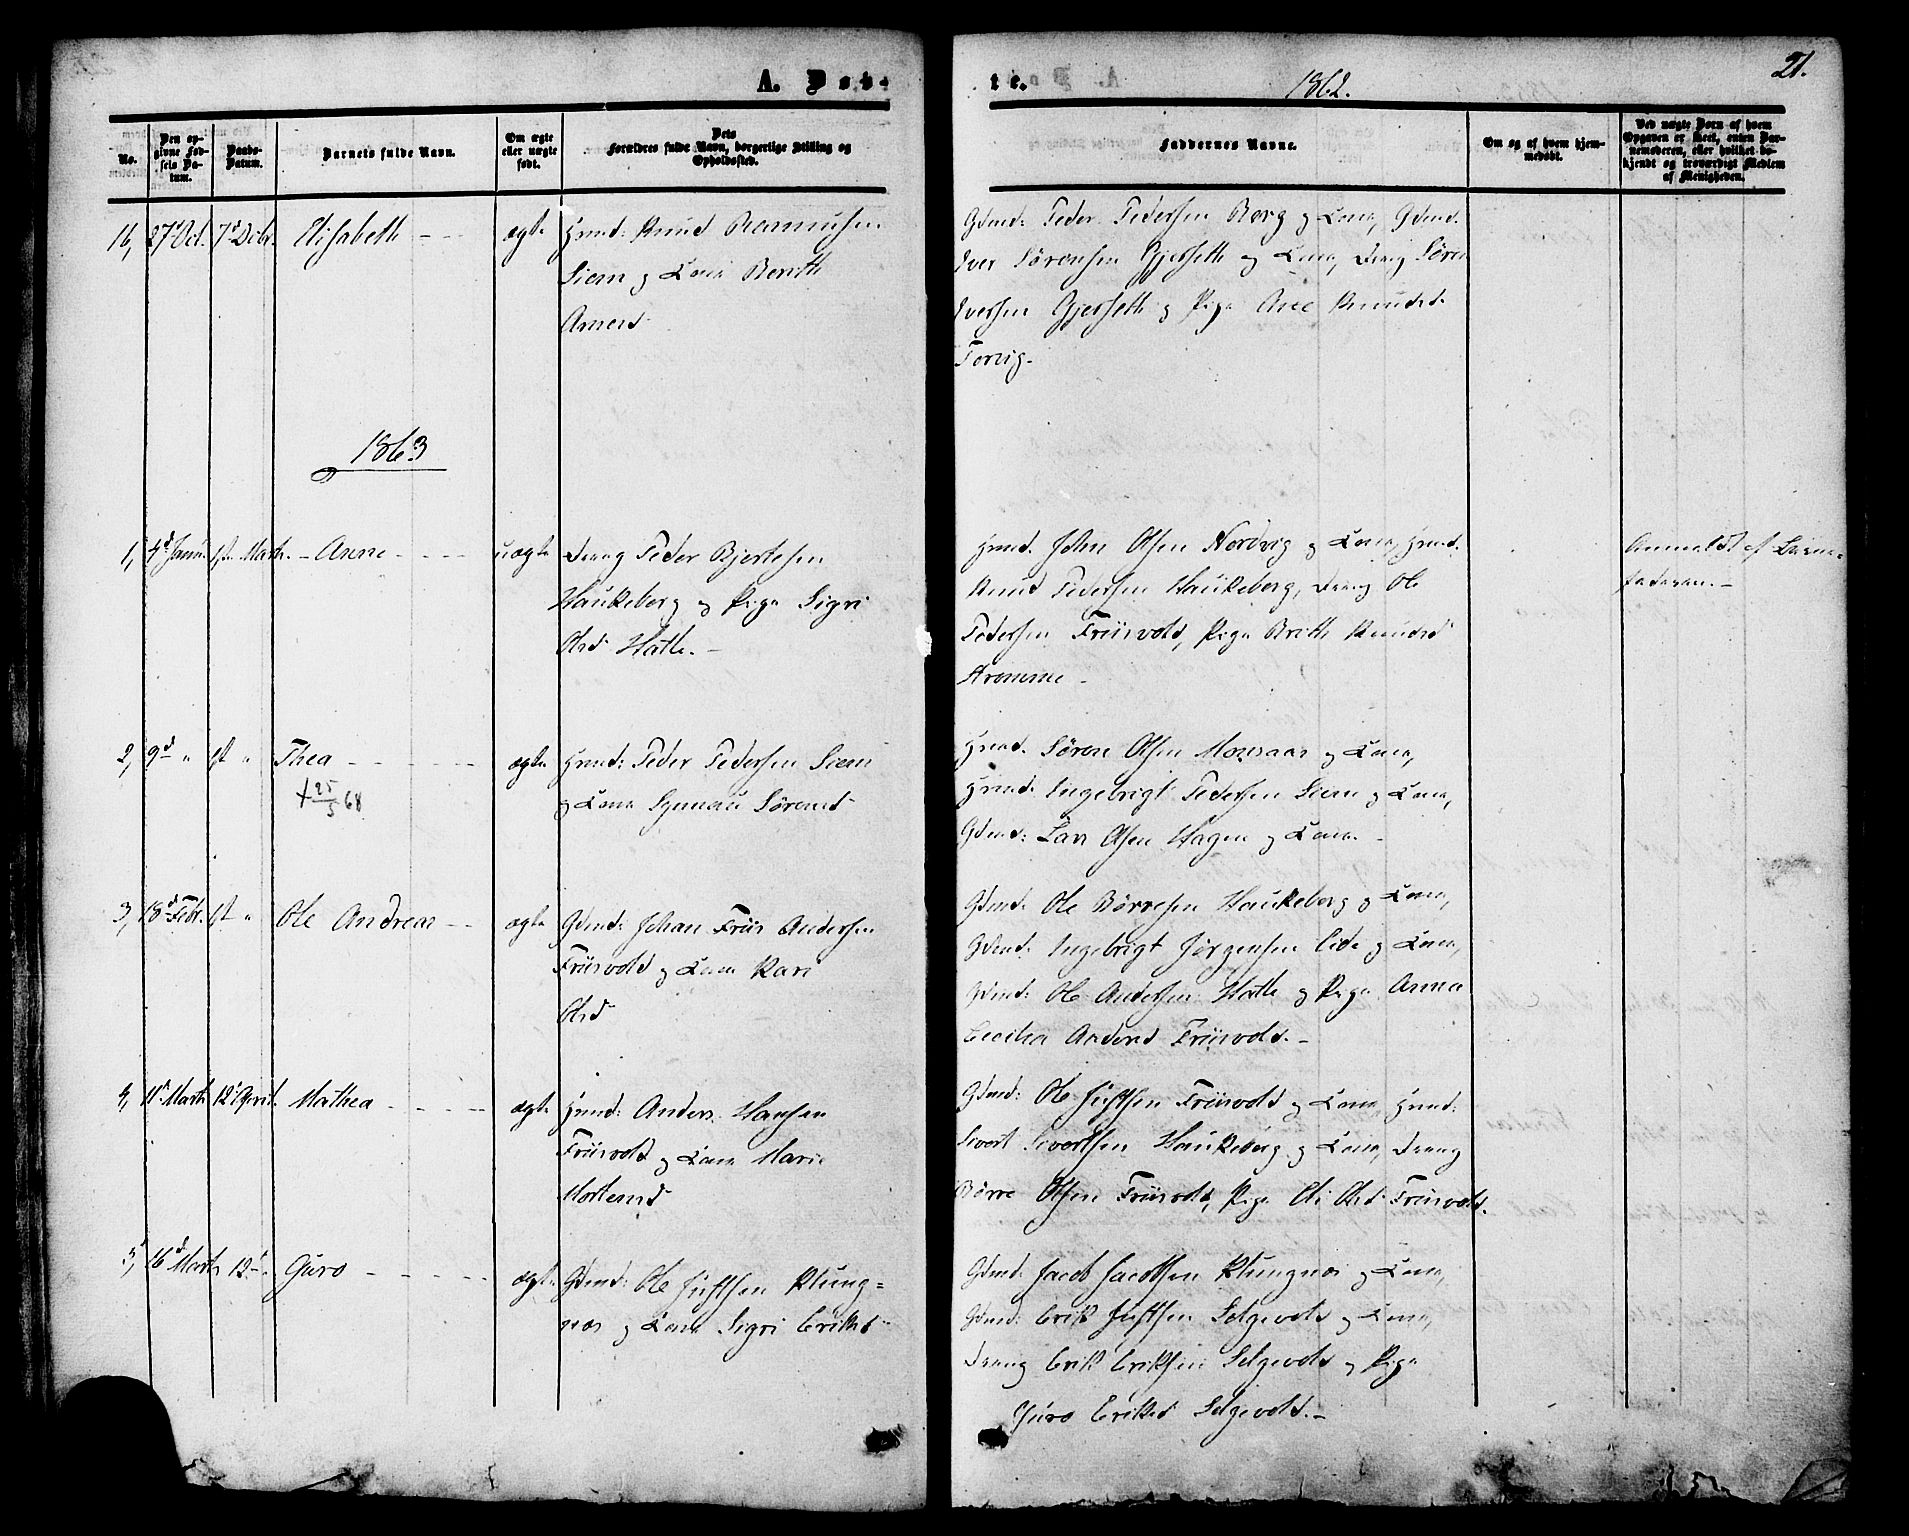 A. Døb-
te.
1862.
21.
No.
Den op-
givne Fød-
sels Da-
tum.
Daabs-
Datum.
Barnets fulde Navn.
Om ægte
eller uægte
født.
Dets
Forældres fulde Navn, borgerlige Stilling og
Opholdssted.
Faddernes Navne.
Om og af hvem hjem-
medøbt.
Ved uægte Børn af hvem
Opgaven er skeet, enten Bar-
nemoderen, eller hvilket be-
kjendt og troværdigt Medlem
af Menigheden.
16, 27 Oct. 7 Debr. Elisabeth - - - ægte Hmd: Knud Rasmussen
Siem og Kone Berith
Arnesd
Gdmd: Peder Pedersen Berg og Kone, Gdmd.
Iver Sørensen Gjerseth og Kone, Dreng Søren
Iversen Gjerseth og Pige Ane Knudsd
Torvig.
1863
1, 4d Janu. 1st Marts. - Anne - - - - uægte Dreng Peder Bjertesen
Haukeberg og Pige Sigri
Olsd Hatle. -
Hmd. John Olsen Nordvig og Kone, Hmd.
Knud Pedersen Haukeberg, Dreng Ole
Pedersen Friisvold, Pige Brith Knudsd
Kromme -
Anmeldt af Barne-
faderen. -
2, 9d " 1st " Thea - - - - - - ægte Hmd: Peder Pedersen Siem
+ 25/5 68
og Kone Synnau Sørensd
Hmd. Søren Olsen Monsaas og Kone,
Hmd. Ingebrigt Pedersen Siem og Kone,
Gdmd: Lars Olsen Hagen og Kone. -
3, 18d Febr. 1st " Ole Andreas - - ægte Gdmd: Johan Friis Andersen
Friisvold og Kone Kari
Olsd
Gdmd. Ole Børresen Haukeberg og Kone,
Gdmd. Ingebrigt Jørgensen Eide og Kone,
Gdmd: Ole Andersen Hatle og Pige Anna
Cecilia Andersd Friisvold. -
4, 11d Marts 12 April. Mathea - - - - - ægte Hmd: Anders Hansen
Friisvold og Kone Marie
Mortensd
Gdmd: Ole Justsen Friisvold og Kone Hmd:
Sivert Sivertsen Haukeberg og Kone, Dreng
Børre Olsen Friisvold, Pige Eli Olsd Friisvold.
5, 16d Marts 12 - " Guro - - - - - ægte Gdmd: Ole Justsen Klung=
næs og Kone Sigri Eriksd
Gdmd: Jacob Jacobsen Klungnæs og Kone,
Gdmd: Erik Justsen Selgevold og Kone,
Dreng Erik Eriksen Selgevold og Pige
Guro Eriksd Selgevold. -